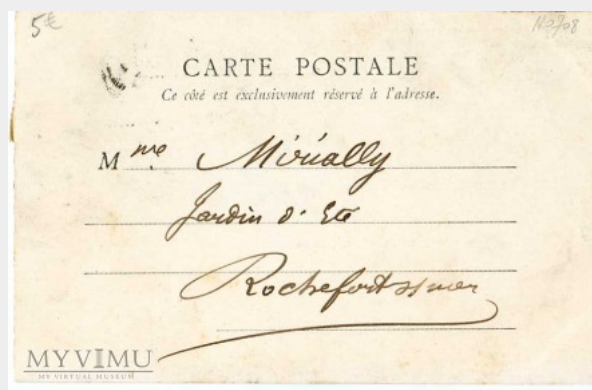 5€
CARTE POSTALE
Ce côté est exclusivement réservé à l'adresse.
Mme
Jardin d'Eté
Rochefort s/mer
MYVIMU
MY VIRTUAL MUSEUM